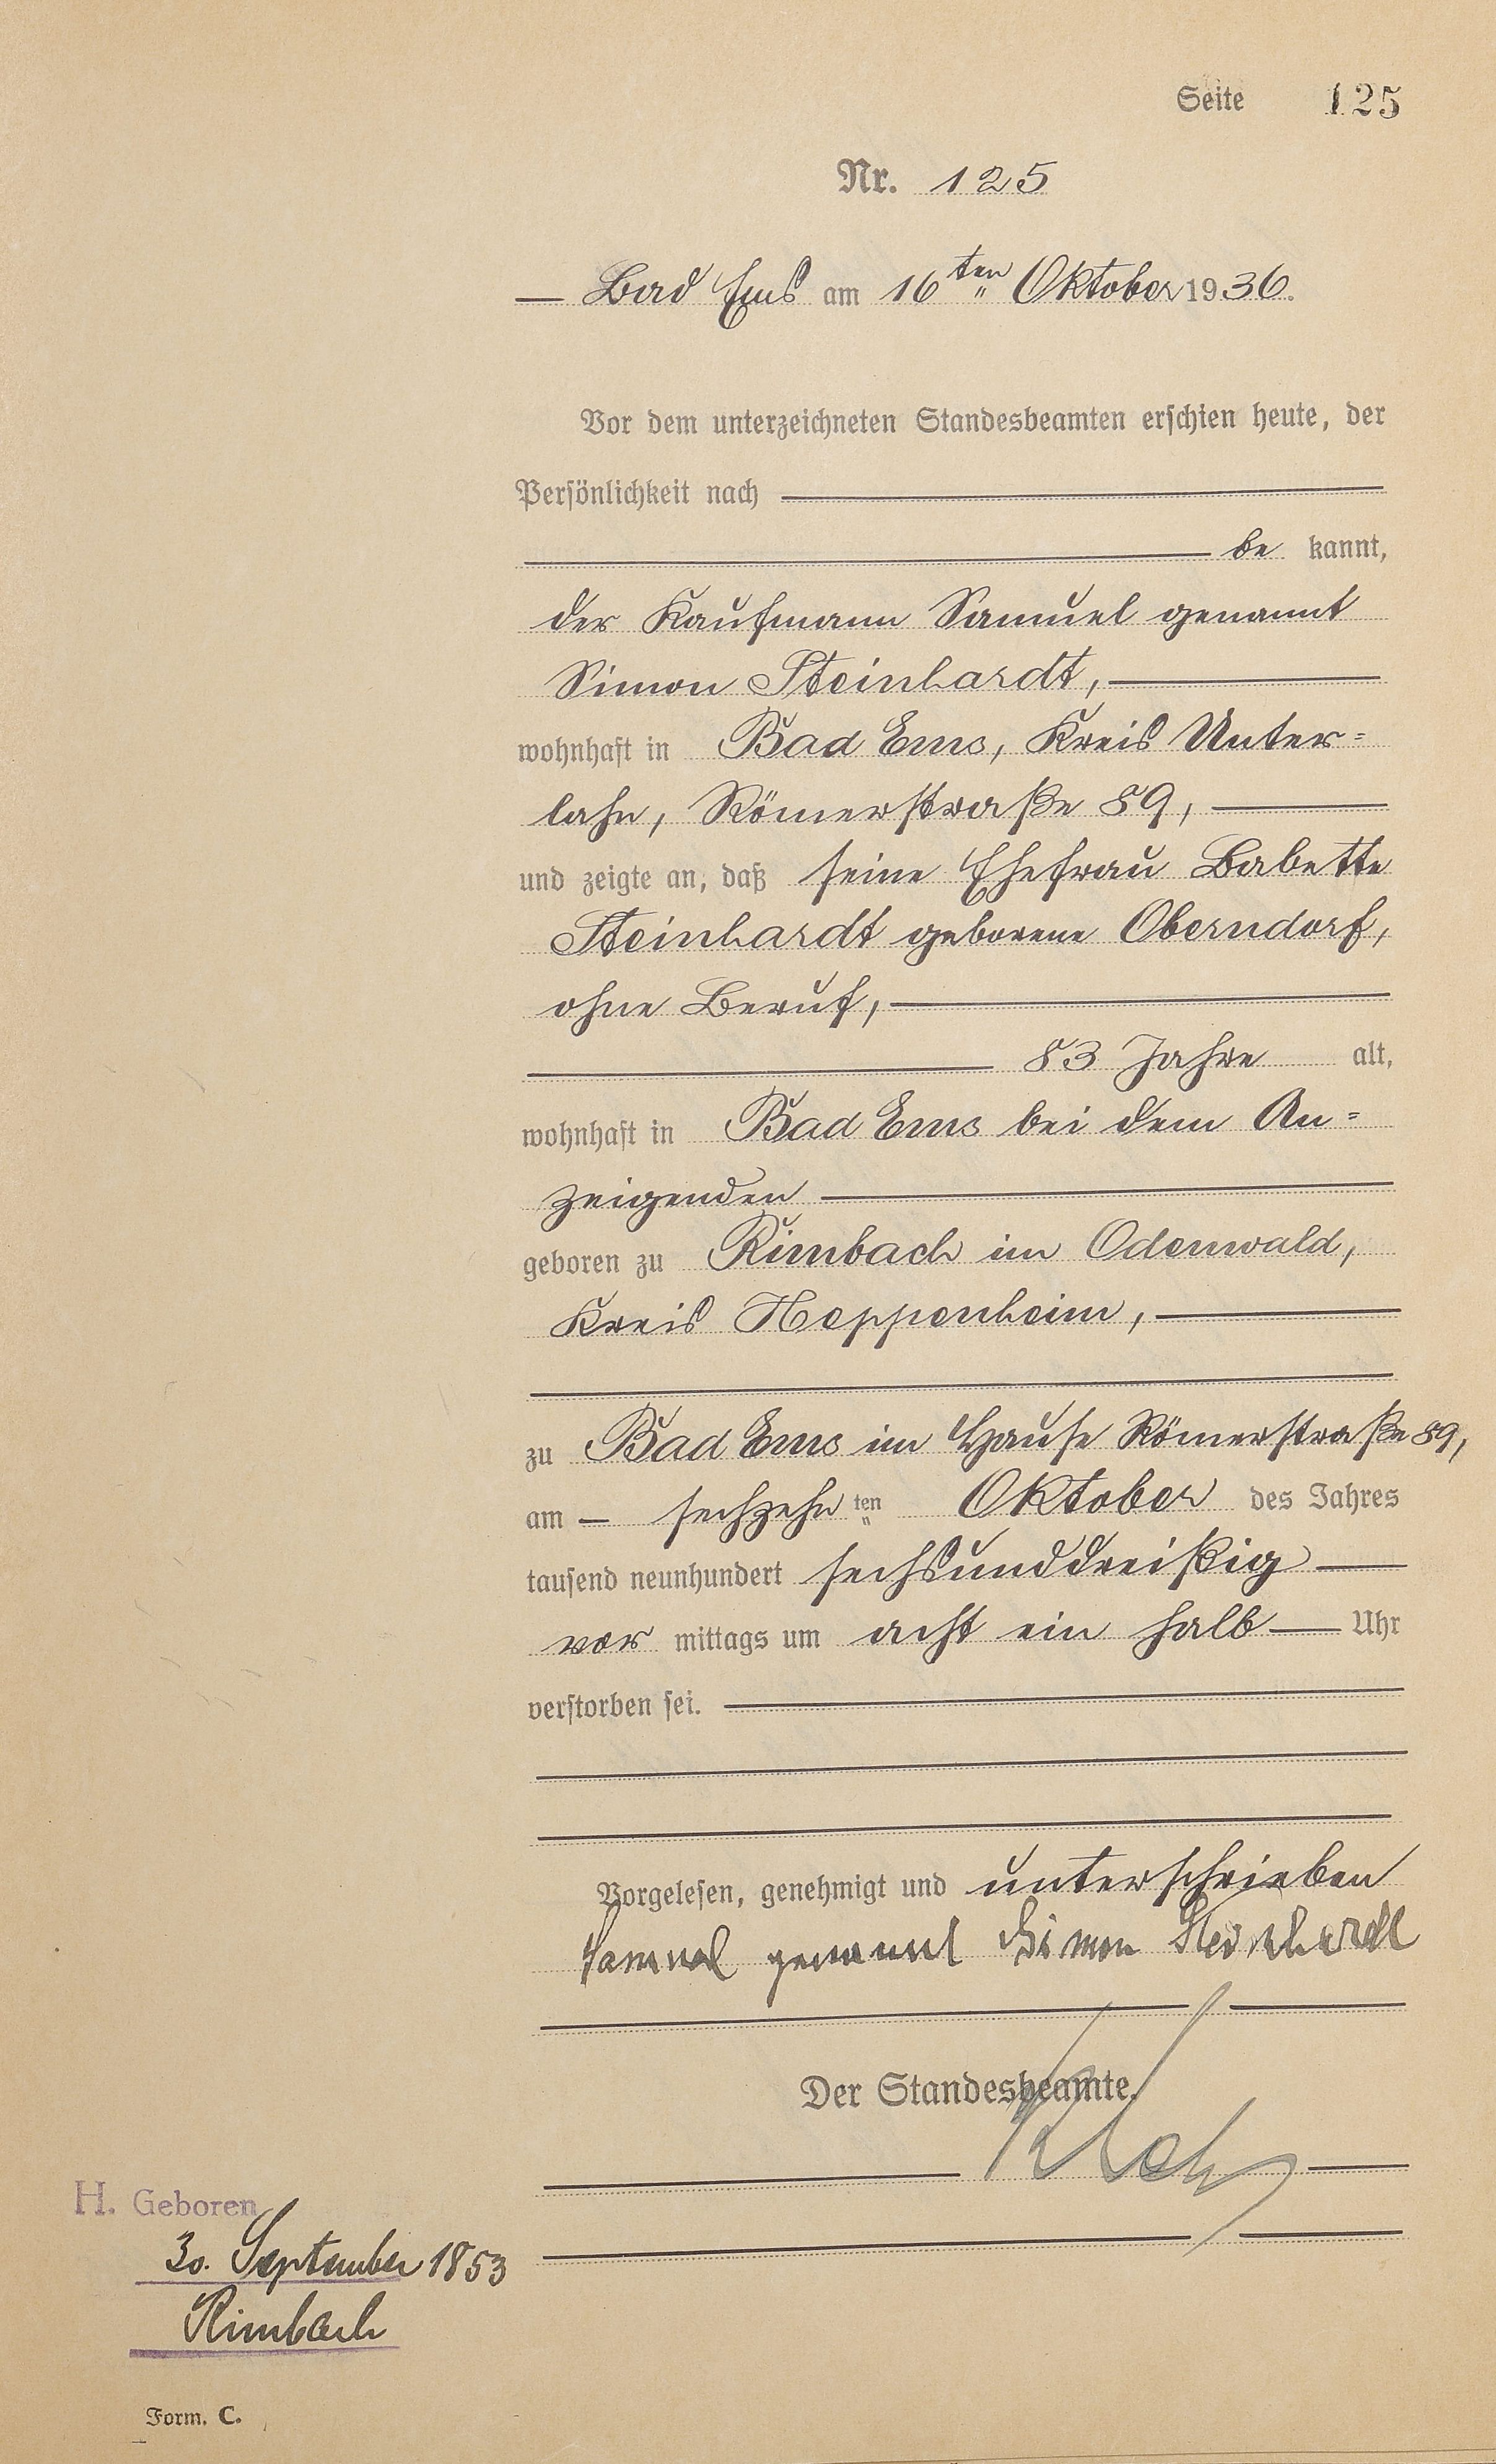 Seite 125
Nr. 125
— Bad Ems am 16ten Oktober 1936.
Vor dem unterzeichneten Standesbeamten erschien heute, der
Persönlichkeit nach
be kannt,
der Kaufmann Samuel genannt
Simon Steinhardt,
wohnhaft in Bad Ems, Kreis Unter=
lahn, Römerstraße 89,
und zeigte an, daß seine Ehefrau Babette
Steinhardt geborene Oberndorf,
ohne Beruf,
83 Jahre alt,
wohnhaft in Bad Ems bei dem An=
zeigenden
geboren zu Rimbach im Odenwald,
Kreis Heppenheim,
zu Bad Ems im Hause Römerstraße 89,
am — sechzehn ten Oktober des Jahres
tausend neunhundert sechsunddreißig
vor mittags um acht ein halb — Uhr
verstorben sei.
Vorgelesen, genehmigt und unterschrieben
Samuel genannt Simon Steinhardt
Der Standesbeamte.
H. Geboren
30. September 1853
Rimbach
Form. C.